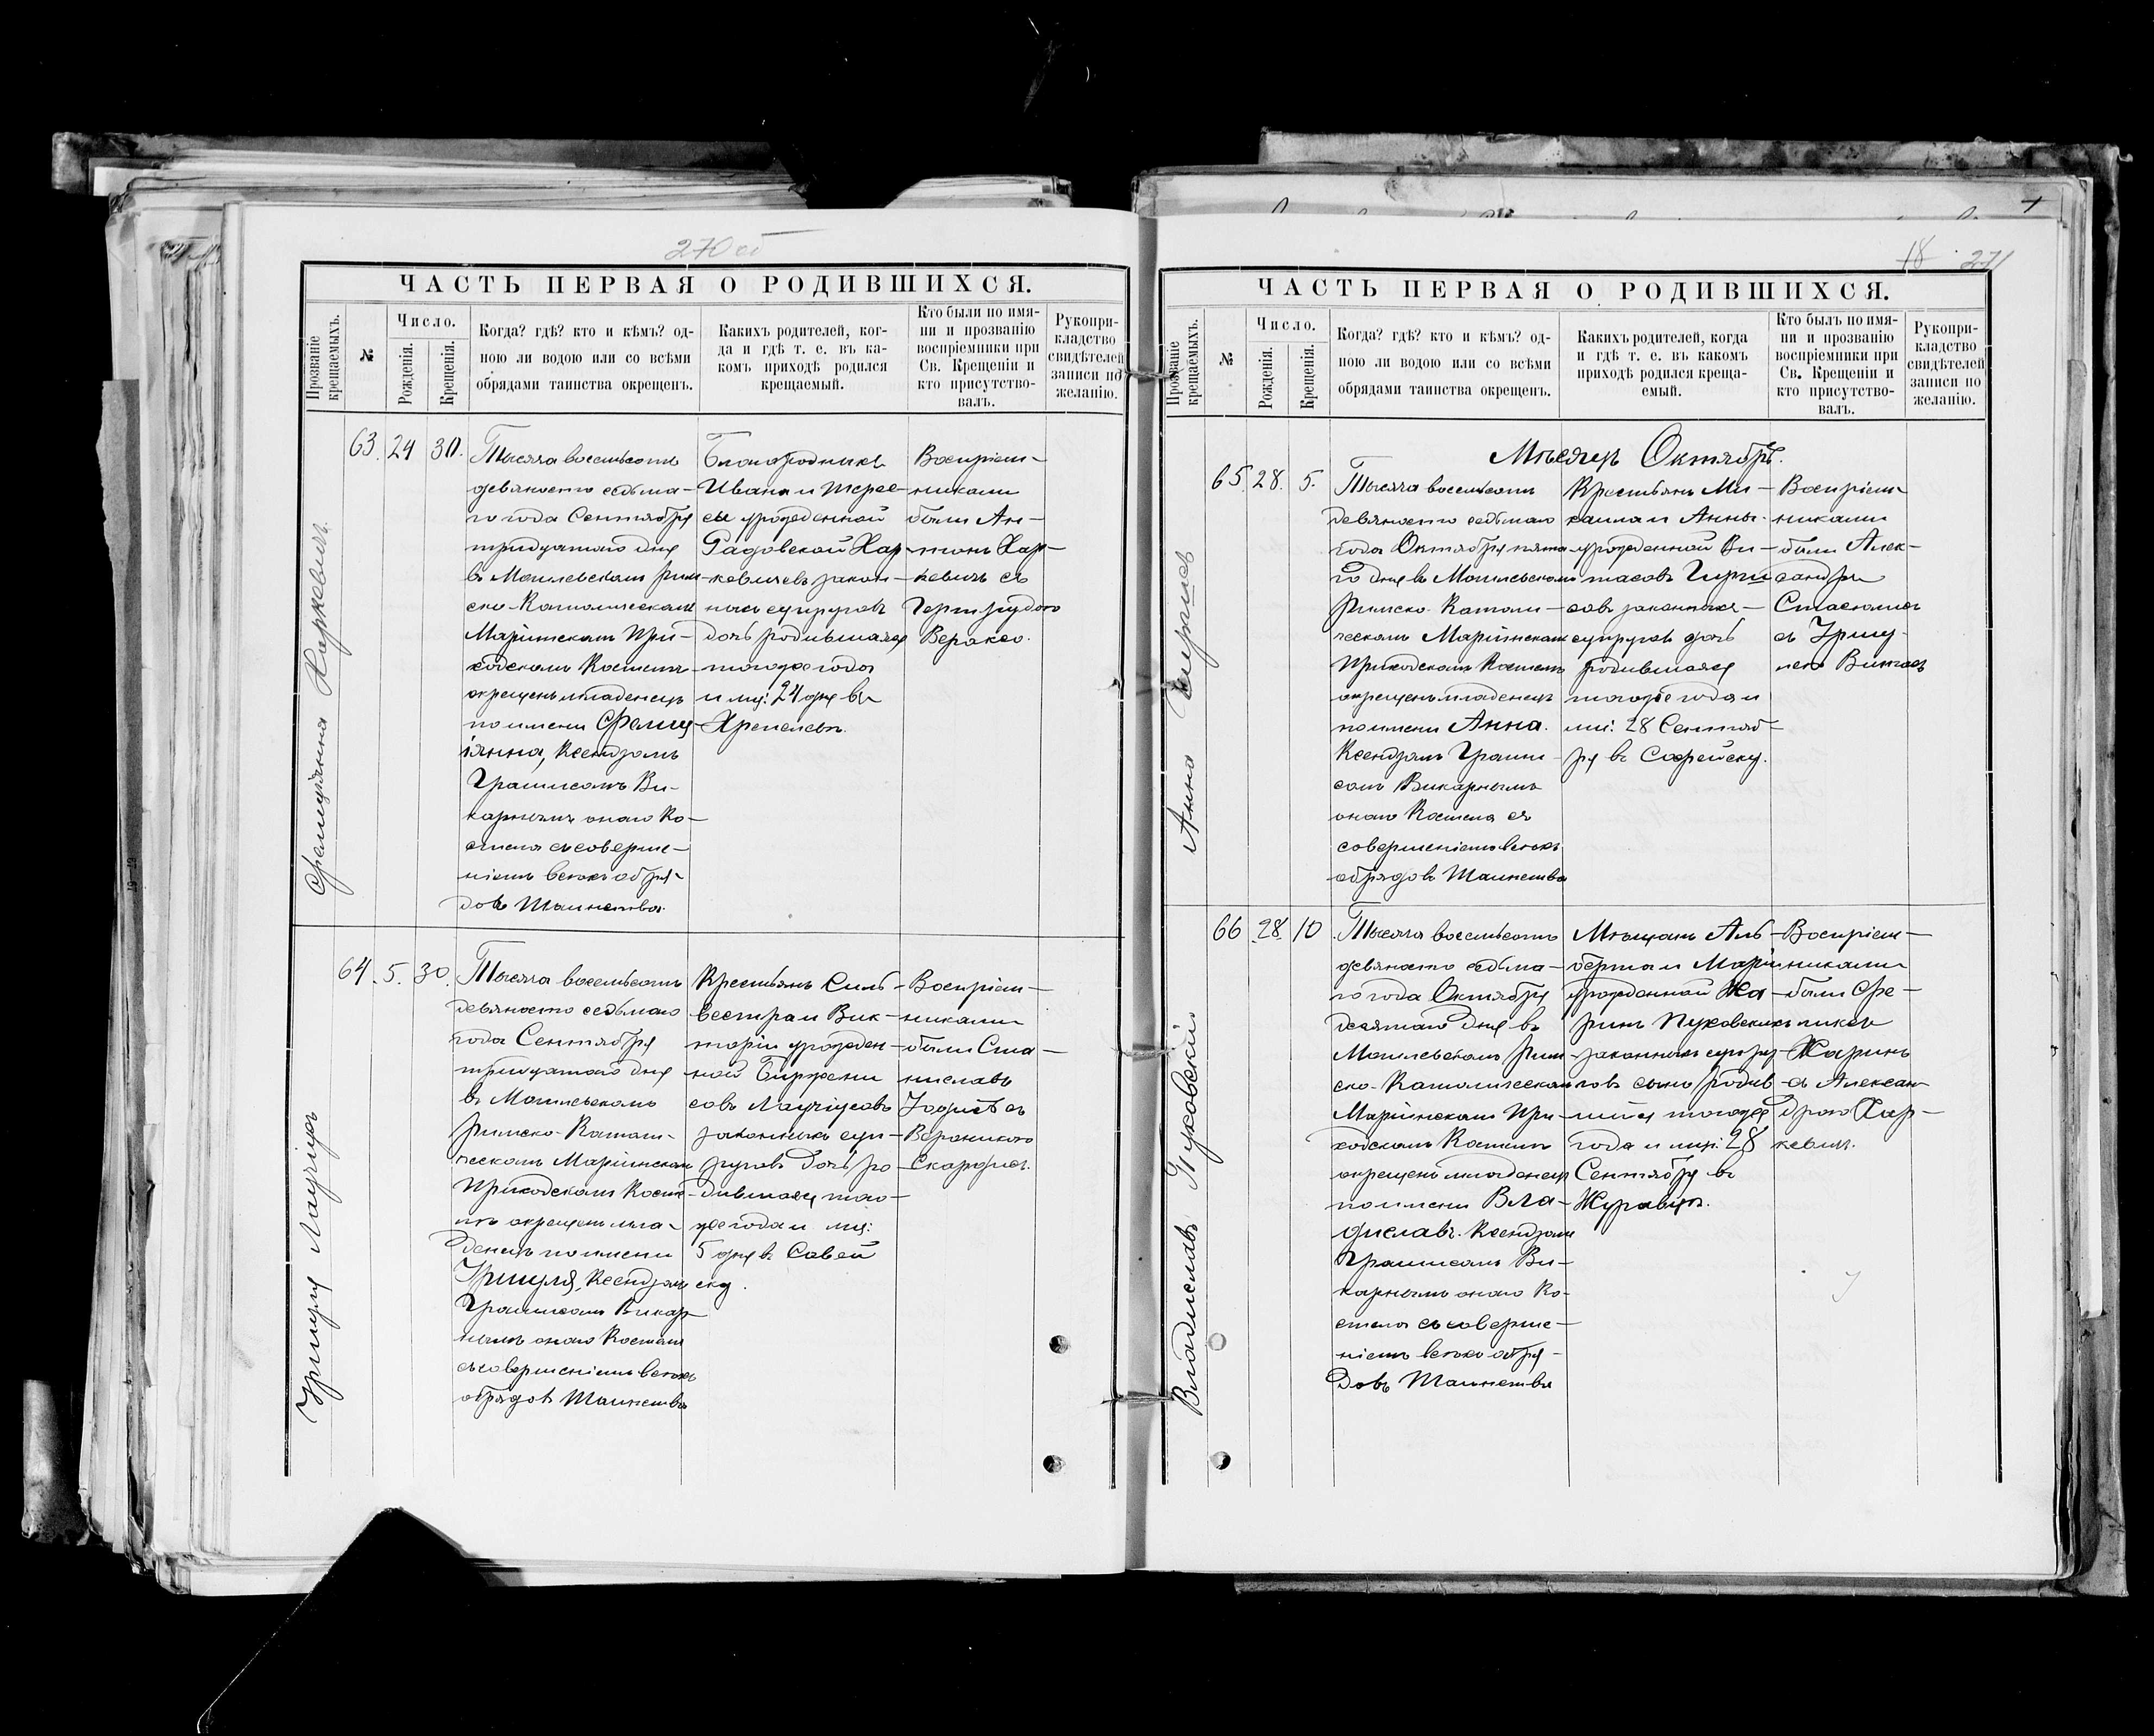 270 об
ЧАСТЬ ПЕРВАЯ О РОДИВШИХСЯ.
Прозваніе крещаемыхъ.
№
Число.
Рожденія.
Крещенія.
Когда? гдѣ? кто и кѣмъ? од-
ною ли водою или со всѣми
обрядами таинства окрещенъ.
Какихъ родителей, ког-
да и гдѣ т. е. въ ка-
комъ приходѣ родился
крещаемый.
Кто были по имя-
ни и прозванію
воспріемники при
Св. Крещеніи и
кто присутство-
валъ.
Рукопри-
кладство
свидѣтелей
записи по
желанію.
63. 24 30.
Тысяча восемьсотъ
девяносто седьма-
го года Сентября
тридцатаго дня
въ Могилевскомъ Рим-
ско-Католическомъ
Маріинскомъ При-
ходскомъ Костелѣ
окрещенъ младенецъ
по имени Фелиц-
іянна, Ксендзомъ
Викарнымъ онаго Ко-
стела съ соверше-
ніемъ всѣхъ обря-
довъ Таинства.
Благородныхъ
Ивана и Тере-
сы урожденной
Харкевичевъ закон-
ныхъ супруговъ
дочь родившаяся
тогоже года
и мц: 24 дня въ
Воспріем-
никами
были Ан-
тонъ Хар-
кевичъ съ
Гертрудою
64. 5. 30.
Тысяча восемьсотъ
девяносто седьмаго
года Сентября
тридцатаго дня
въ Могилевскомъ
Римско-Католи-
ческомъ Маріинскомъ
Приходскомъ Косте-
лѣ окрещенъ мла-
денецъ по имени
Уршуля, Ксендзомъ
Викар-
нымъ онаго Костела
съ совершеніемъ всѣхъ
обрядовъ Таинства
Крестьянъ Силь-
вестра и Вик-
торіи урожден-
ной
законныхъ суп-
руговъ дочь ро-
дившаяся того-
же года и мц:
5 дня въ Савей
ску.
Воспріем-
никами
были Ста-
ниславъ
Вероникою
18 271
ЧАСТЬ ПЕРВАЯ О РОДИВШИХСЯ.
Прозваніе крещаемыхъ.
№
Число.
Рожденія.
Крещенія.
Когда? гдѣ? кто и кѣмъ? од-
ною ли водою или со всѣми
обрядами таинства окрещенъ.
Какихъ родителей, когда
и гдѣ т. е. въ какомъ
приходѣ родился креща-
емый.
Кто былъ по имя-
ни и прозванію
воспріемники при
Св. Крещеніи и
кто присутство-
валъ.
Рукопри-
кладство
свидѣтелей
записи по
желанію.
Мѣсяцъ Октябрь.
Анна
65. 28. 5.
Тысяча восемьсотъ
девяносто седьмаго
года Октября пята-
го дня въ Могилевскомъ
Римско-Католи-
ческомъ Маріинскомъ
Приходскомъ Костелѣ
окрещенъ младенецъ
по имени Анна.
Ксендзомъ
Викарнымъ
онаго Костела съ
совершеніемъ всѣхъ
обрядовъ Таинства
Крестьянъ Ми-
хаила и Анны
урожденной
законныхъ
супруговъ дочь
родившаяся
тогоже года и
мц: 28 Сентяб-
ря въ Софейску.
Воспріем-
никами
были Алек-
сандръ
съ Уршу-
лею
Владиславъ Пуховскій
66 28. 10
Тысяча восемьсотъ
девяносто седьма-
го года Октября
десятаго дня въ
Могилевскомъ Рим-
ско-Католическомъ
Маріинскомъ При-
ходскомъ Костелѣ
окрещенъ младенецъ
по имени Вла-
диславъ. Ксендзомъ
Ви-
карнымъ онаго Ко-
стела съ соверше-
ніемъ всѣхъ обря-
довъ Таинства
Мѣщанъ Аль-
берта и Маріи
урожденной Ха-
ринъ Пуховскихъ
законныхъ супру-
говъ сынъ родив-
шійся тогоже
года и мц: 28
Сентября въ
Воспріем-
никами
были Фе-
ликсъ
Харинъ
съ Алексан-
дрою Хар-
кевич.